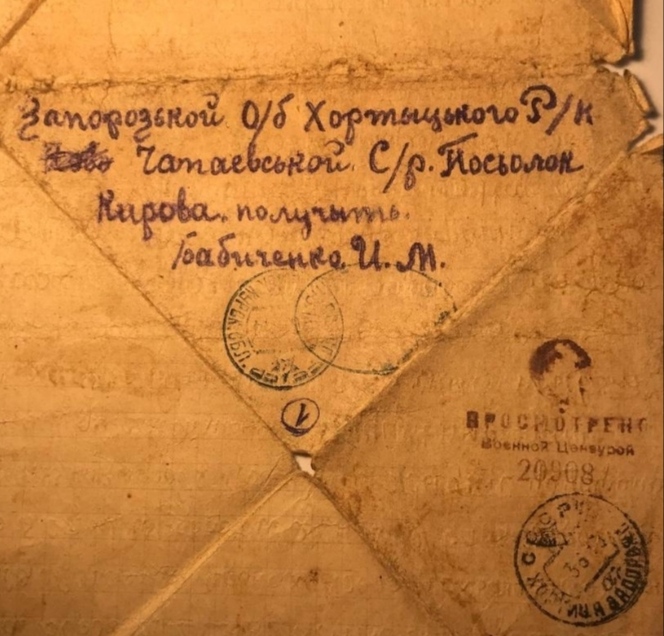 Запорозьной О/б Хортыцького Р/к
Чапаевськой С/р. Посьолок
Кирова. получыть.
Бабиченко И. М.
1
ПРОСМОТРЕНО
Военной Цензурой
20908
СССР